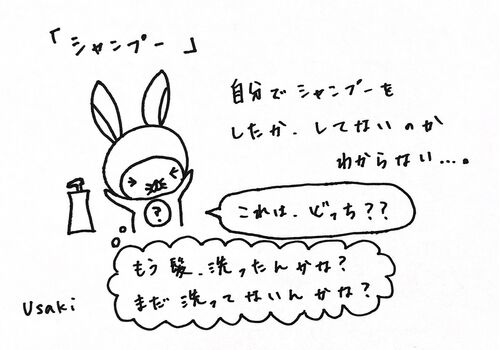 「シャンプー」
自分でシャンプーを
したか、してないのか
わからない…。
これは、どっち??
?
もう髪、洗ったんかな?
まだ洗ってないんかな?
Usaki